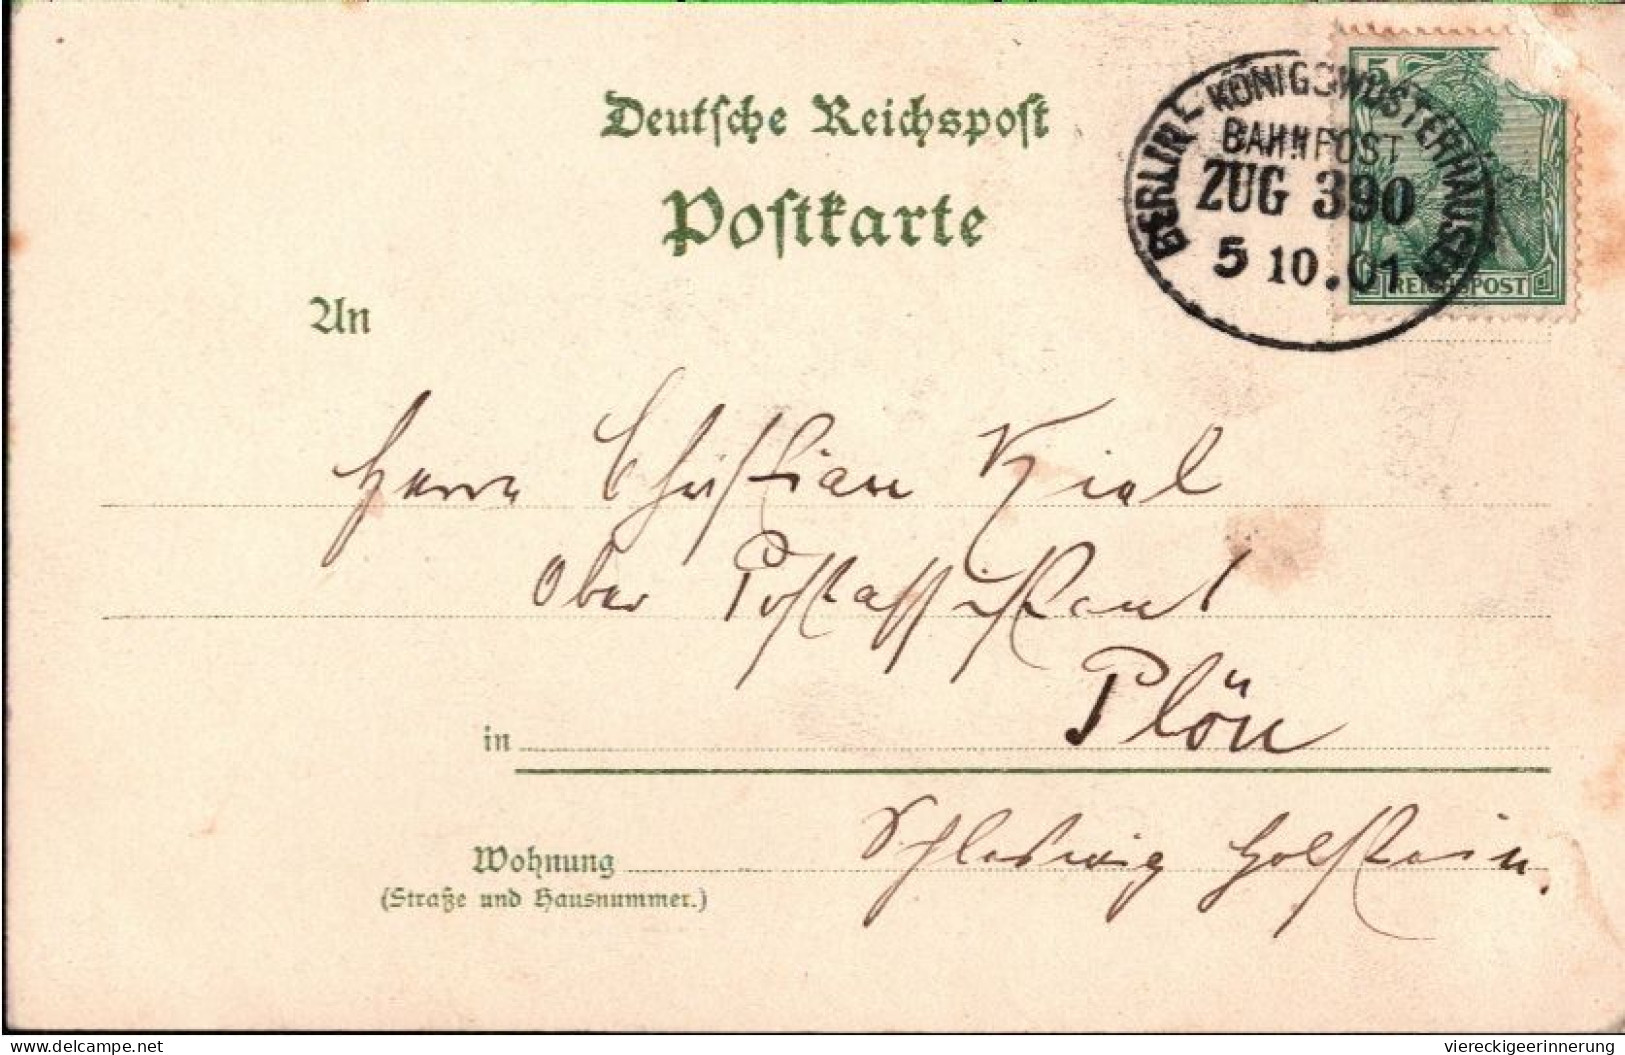 Deutsche Reichspost
Postkarte
5
BERLIN-KÖNIGSWUSTERHAUSEN
BAHNPOST
ZUG 390
5 10.01
REICHSPOST
An
Herrn Christian Kial
Ober Postassistant
in Plön
Schleswig Holstein.
Wohnung
(Straße und Hausnummer.)
www.delcampe.net
viereckigeerinnerung